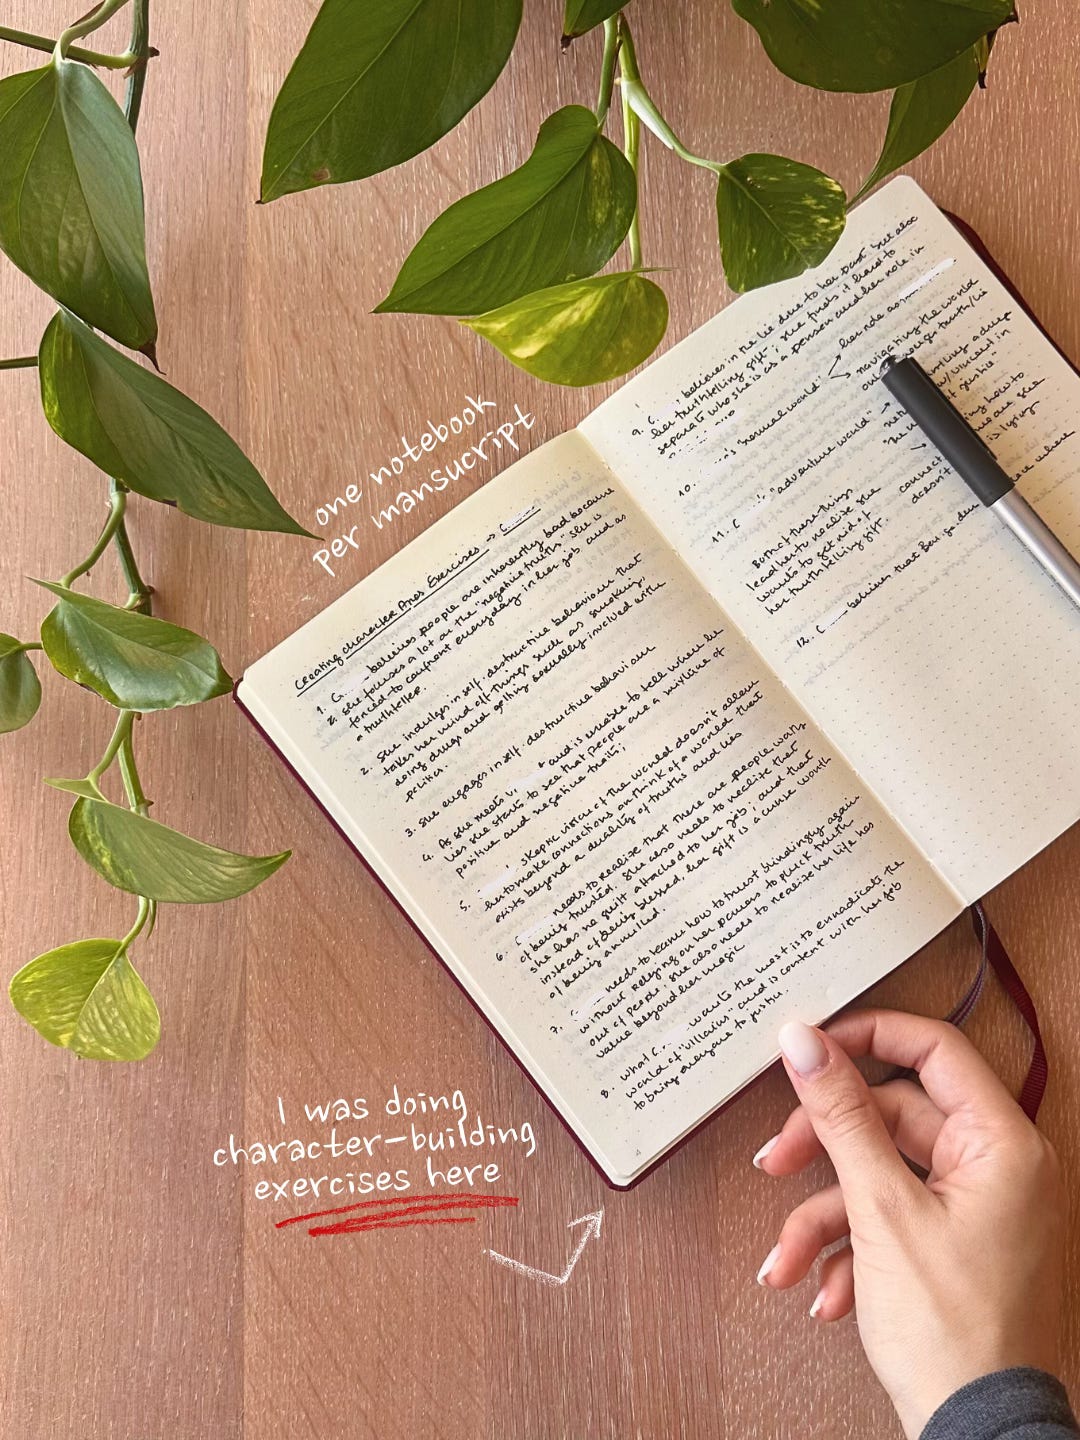 one notebook
per mansucript
Creating character Arcs Exercises → C
1. C believes people are inherently bad because
& she focuses a lot on the "negative truths" she is
forced to confront everyday in her job and as
a truthteller.
2. She indulges in self-destructive behaviour that
takes her mind off things such as smoking,
doing drugs and getting sexually involved with
3. She engages in self-destructive behaviour
4. As she meets and is unable to tell where he
lies she starts to see that people are a mixture of
positive and negative traits;
5. skeptic vision of the world doesn't allow
her to make connections or think of a world that
exists beyond a duality of truths and lies
6. C needs to realize that there are people worth
of being trusted. She also needs to realize that
she has no guilt attached to her job; and that
instead of being blessed, her gift is a curse worth
of being annulled.
7. C needs to learn how to trust blindingly again
without relying on her powers to pluck truth
out of people; she also needs to realize her life has
value beyond her magic
8. What C wants the most is to erradicate the
world of "villains" and is content with her job
to bring everyone to justice.
4
9. C believes in the lie due to her past but also
her truthtelling gift; she finds it hard to
separate who she is as a person and her role in
10. 's "normal world" her role as
navigating the world
truth/lie
11. C 's "adventure world"
w/ Vincent in
how to
she
is lying
connect
doesn't
Both of these things
lead her to realize she
wants to get rid of
her truthtelling gift.
12. C believes that Ben
I was doing
character-building
exercises here